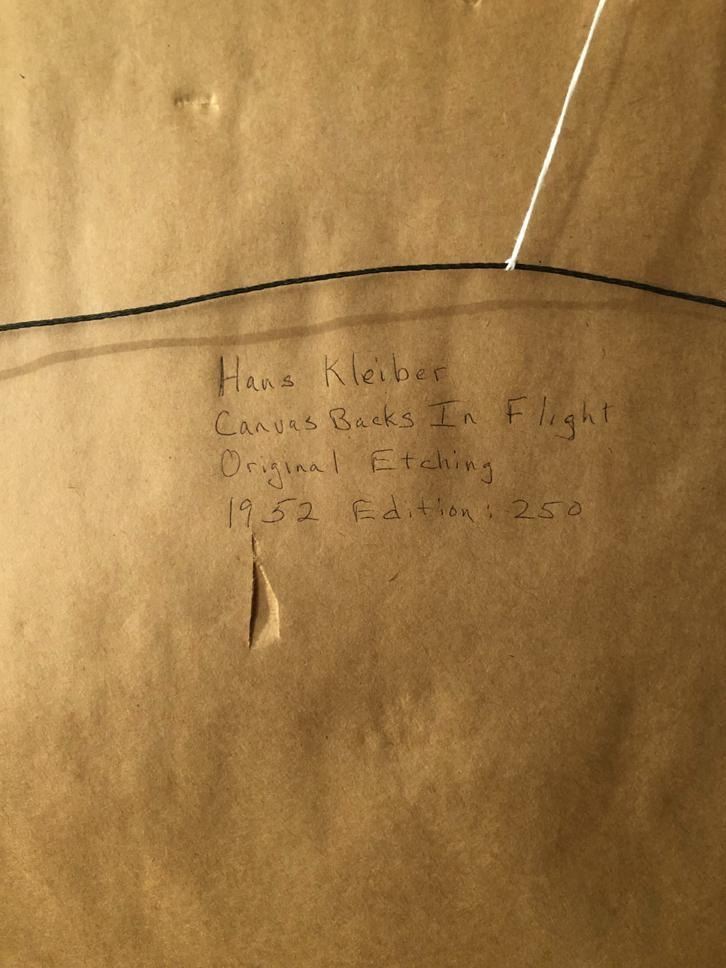 Hans Kleiber
Canvas Backs In Flight
Original Etching
1952 Edition: 250